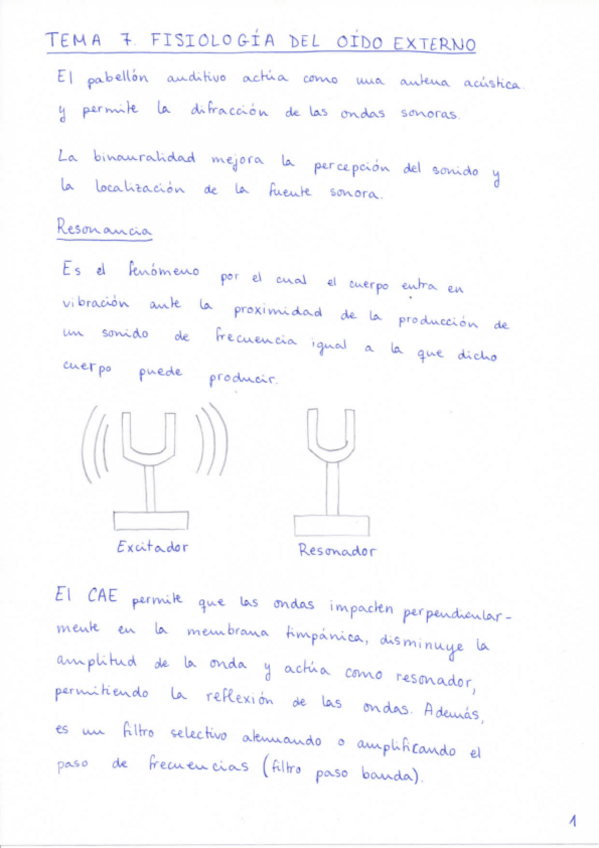 TEMA 7. FISIOLOGÍA DEL OÍDO EXTERNO
El pabellón auditivo actúa como una antena acústica
y permite la difracción de las ondas sonoras.
La binauralidad mejora la percepción del sonido y
la localización de la fuente sonora.
Resonancia
Es el fenómeno por el cual el cuerpo entra en
vibración ante la proximidad de la producción de
un sonido de frecuencia igual a la que dicho
cuerpo puede producir.
Excitador
Resonador
El CAE permite que las ondas impacten perpendicular-
mente en la membrana timpánica, disminuye la
amplitud de la onda y actúa como resonador,
permitiendo la reflexión de las ondas. Además,
es un filtro selectivo atenuando o amplificando el
paso de frecuencias (filtro paso banda).
1